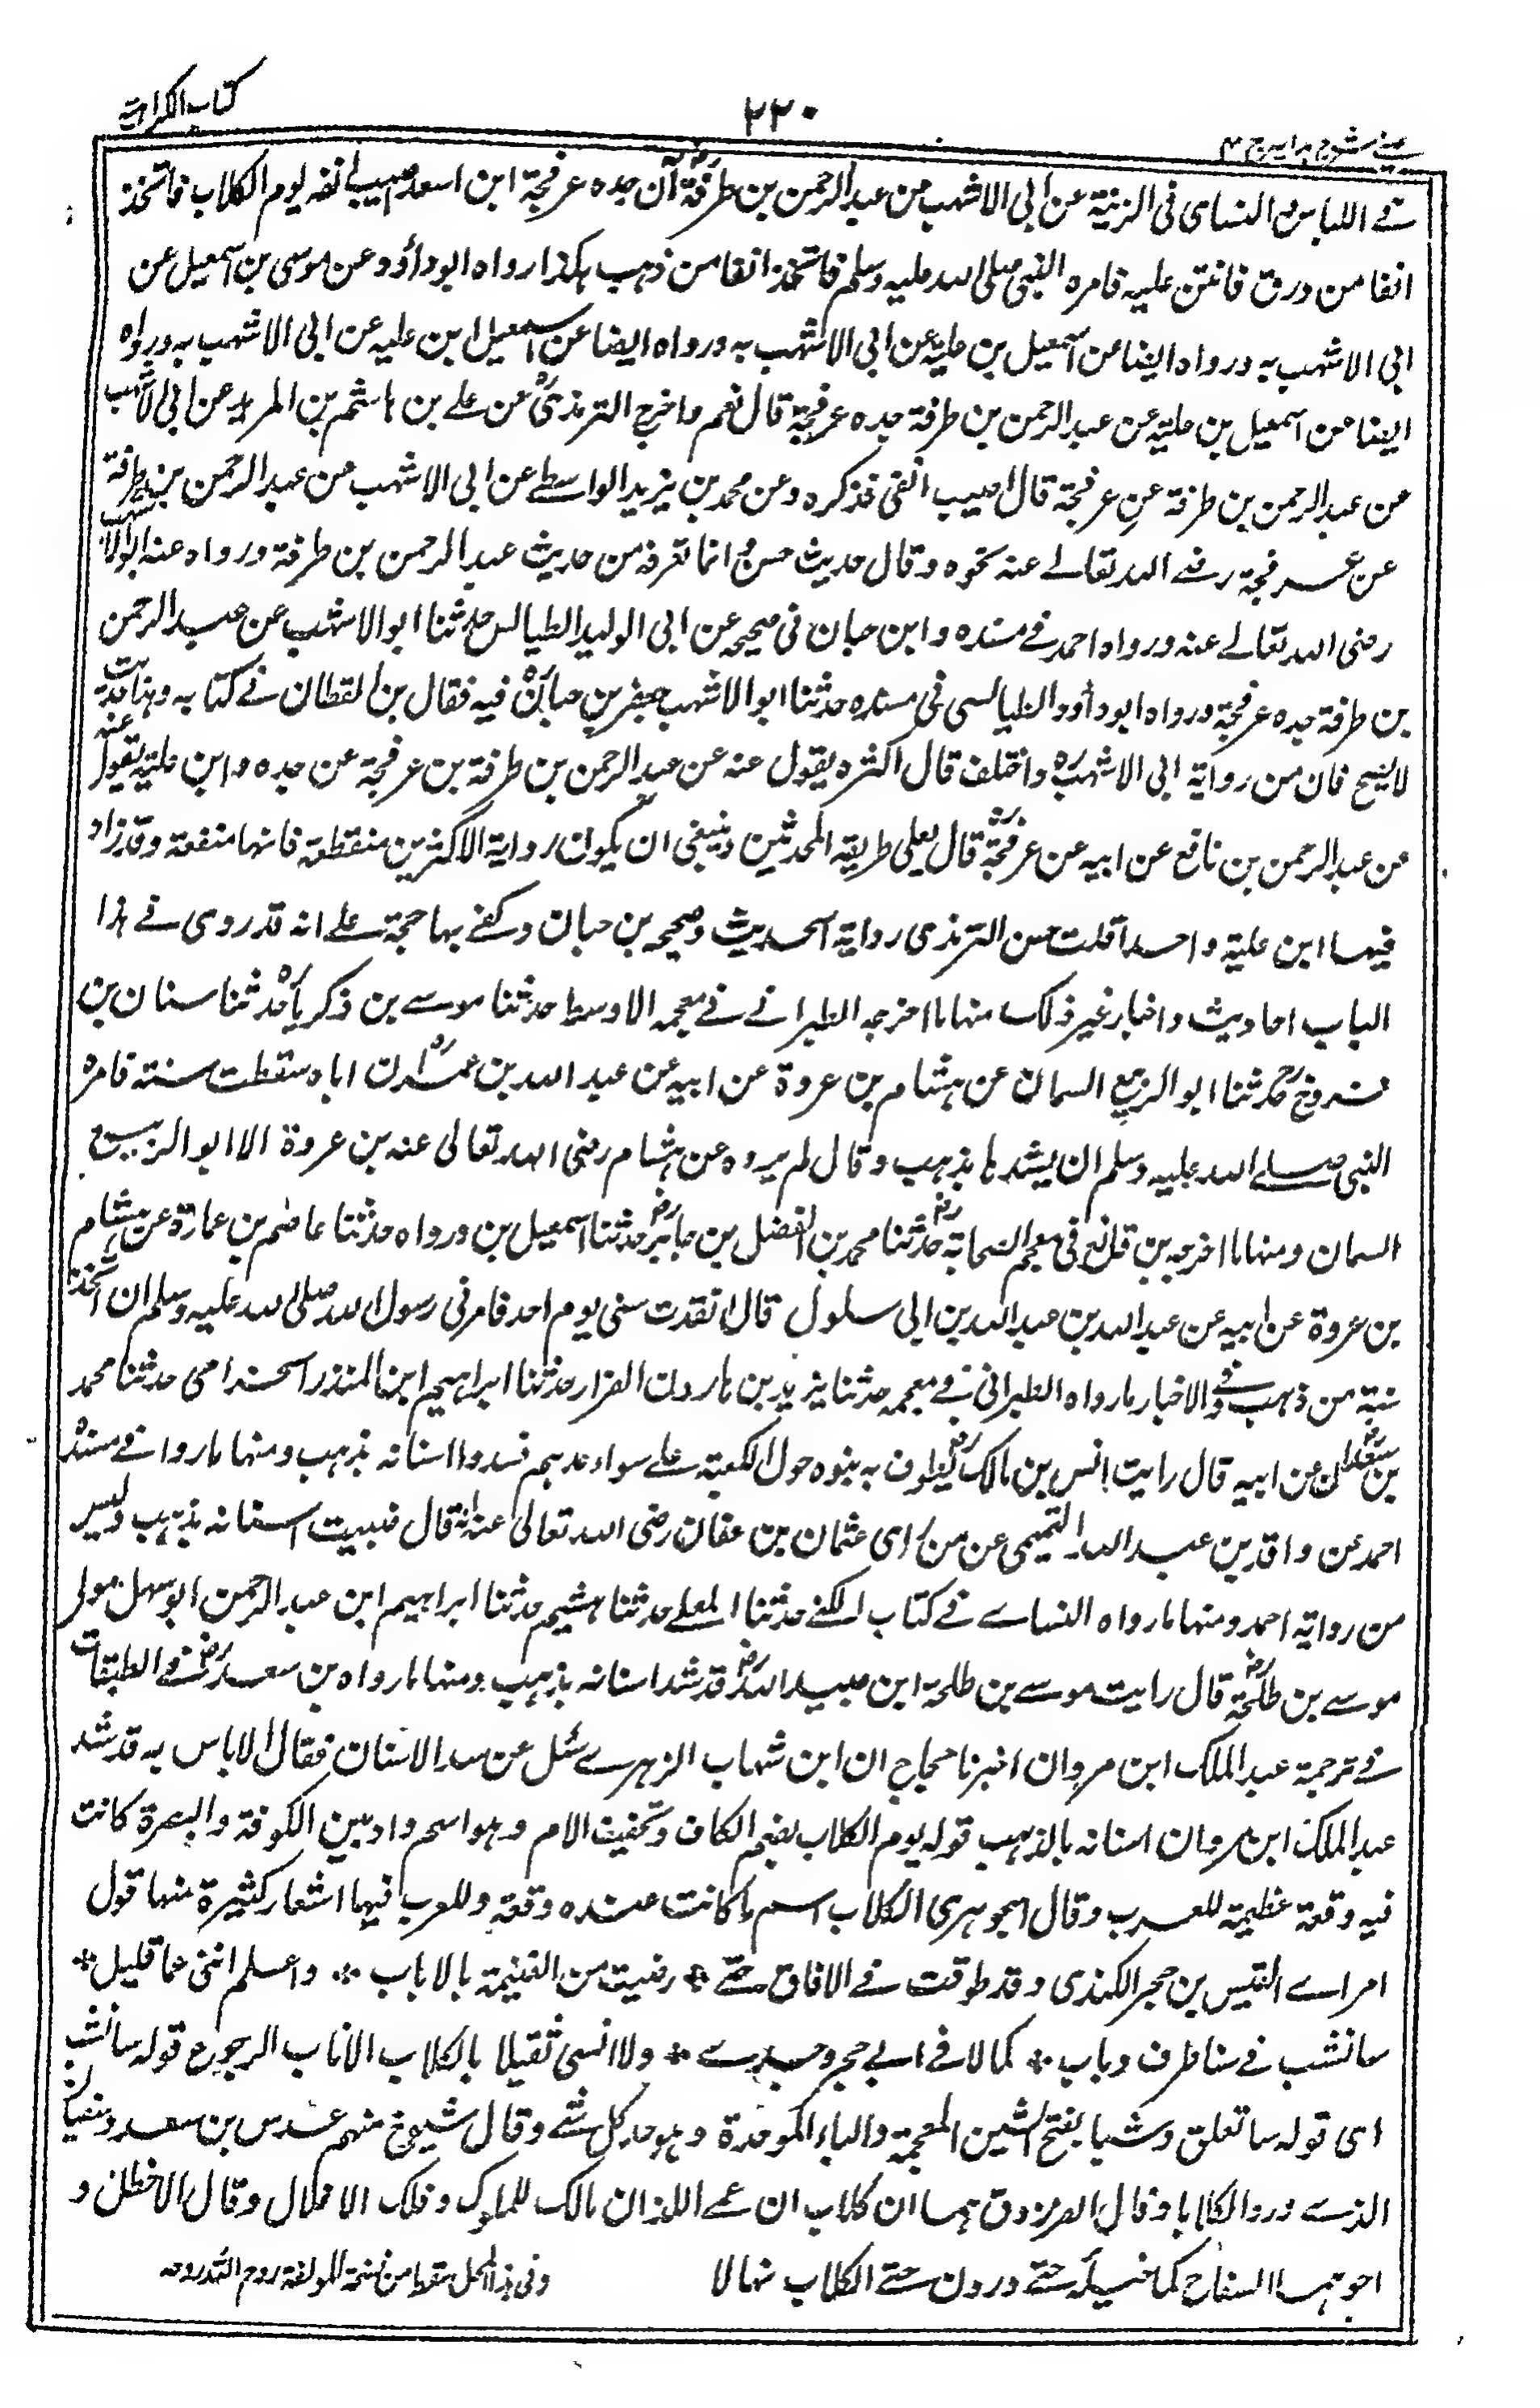 كتاب الكراهية
٢٢٠
عينى شرح هدايه ج ٤
فے اللباس والنسائى فى الزينة عن ابى الاشهب عن عبد الرحمن بن طرفة ان جده عرفجة ابن اسعد اصيب انفه يوم الكلاب فاتخذ
انفا من ورق فانتن عليه فامره النبى صلى الله عليه وسلم فاتخذ انفا من ذهب هكذا رواه ابوداؤد وعن موسى بن اسمعيل عن
ابى الاشهب به ورواه ايضا عن اسمعيل بن علية عن ابى الاشهب به ورواه ايضا عن اسمعيل ابن عليه عن ابى الاشهب به ورواه
ايضا عن اسمعيل بن علية عن عبد الرحمن بن طرفة جده عرفجة قال نعم واخرج الترمذى عن علے بن هاشم بن البريد عن ابى الاشهب
عن عبد الرحمن بن طرفة عن عرفجة قال اصيب انفى فذكره وعن محمد بن يزيد الواسطے عن ابى الاشهب عن عبد الرحمن بن طرفة
عن عرفجة رضے الله تعالے عنه نحوه وقال حديث حسن انما نعرفه من حديث عبد الرحمن بن طرفة ورواه عنه ابو الاشهب
رضى الله تعالے عنه ورواه احمد فے مسنده وابن حبان فى صحيحه عن ابى الوليد الطيالسى حدثنا ابو الاشهب عن عبد الرحمن
بن طرفة جده عرفجة ورواه ابو داؤد الطيالسى فى مسنده حدثنا ابو الاشهب جعفر بن حبان فيه فقال بن القطان فے كتابه وهذا حديث
لا يصح فان من رواية ابى الاشهب واختلف قال اكثره يقول عنه عن عبد الرحمن بن طرفة بن عرفجة عن جده وابن علية يقول عنه
عن عبد الرحمن بن نافع عن ابيه عن عرفجة قال يعلى طريقه المحدثين وينبغى ان يكون رواية الاكثرين منقطعة فانها منفعة وقد زاد
فيها ابن علية واحدا قلت حسن الترمذى رواية الحديث وصححه بن حبان وكفے بها حجة علے انه قد روى فے هذا
الباب احاديث واخبار غير ذلك منها ما اخرجه الطبرانے فے معجمه الاوسط حدثنا موسے بن ذكريا حدثنا سنان بن
فروخ حدثنا ابو الربيع السمان عن هشام بن عروة عن ابيه عن عبد الله بن عمر ان اباه سقطت سنته فامره
النبى صلے الله عليه وسلم ان يشدها بذهب وقال لم يروه عن هشام رضى الله تعالى عنه بن عروة الا ابو الربيع
السمان ومنها ما اخرجه بن قانع فى معجم الصحابة حدثنا محمد بن الفضل بن جابر حدثنا اسمعيل بن ورواه حدثنا عاصم بن عمارة عن هشام
بن عروة عن ابيه عن عبد الله بن عبد الله بن ابى سلول قال انقدت سنى يوم احد فامرنى رسول الله صلى الله عليه وسلم ان اتخذ
ثنية من ذهب وفے الاخبار ما رواه الطبرانى فے معجمه حدثنا يزيد بن هارون القزار حدثنا ابراهيم ابن المنذر الحزامى حدثنا محمد
بن سعدان عن ابيه قال رايت انس بن مالك يطوف به بنوه حول الكعبة علے سواعدهم فسدوا اسنانه بذهب ومنها ما روا فے مسند
احمد عن واقد بن عبد الله التميمى عن من رأى عثمان بن عفان رضى الله تعالى عنه انه قال ضببت اسنانه بذهب وليس
من رواية احمد ومنها ما رواه النسائے فے كتاب الكنے حدثنا المعلے حدثنا هشيم حدثنا ابراهيم ابن عبد الرحمن ابو سهل مولى
موسے بن طلحة قال رايت موسے بن طلحة ابن عبيد الله قد شد اسنانه بذهب ومنها ما رواه بن سعد فے الطبقات
فے ترجمة عبد الملك ابن مروان اخبرنا حجاج ان ابن شهاب الزهرے سئل عن سد الاسنان فقال لا باس به قد شد
عبد الملك ابن مروان اسنانه بالذهب قوله يوم الكلاب بضم الكاف وتخفيف الام وهو اسم واد بين الكوفة والبصرة كانت
فيه وقعة عظيمة للعرب وقال الجوهرى الكلاب اسم ماء كانت عنده وقعة وللعرب فيها اشعار كثيرة منها قول
امراے القيس بن حجر الكندى وقد طوقت فے الافاق حتے * رضيت من الغنيمة بالاياب * واعلم اننى عما قليل *
سانشب فے شبا ظرف وباب * كما لاقے ابے حجر وجدے * ولا انسى ثقيلا بالكلاب الاناب الرجوع قوله سانشب
اى قوله ساتعلق وشبا بفتح الشين المعجمة والباء الموحدة وهو حد كل شئے وقال شيوخ منهم عدس بن سعد وسفيان
الذے ورد الكلابا وقال الفرزدق بهما ان كلاب ان عمے اللذان مالك للملوك وفلك الاغلال وقال الاخطل و
اخوهما السفاح كما خيله حتے وردن حتے الكلاب نهالا
وفى هذا المحل سقطا من نسخة المولفة روم الله روحه